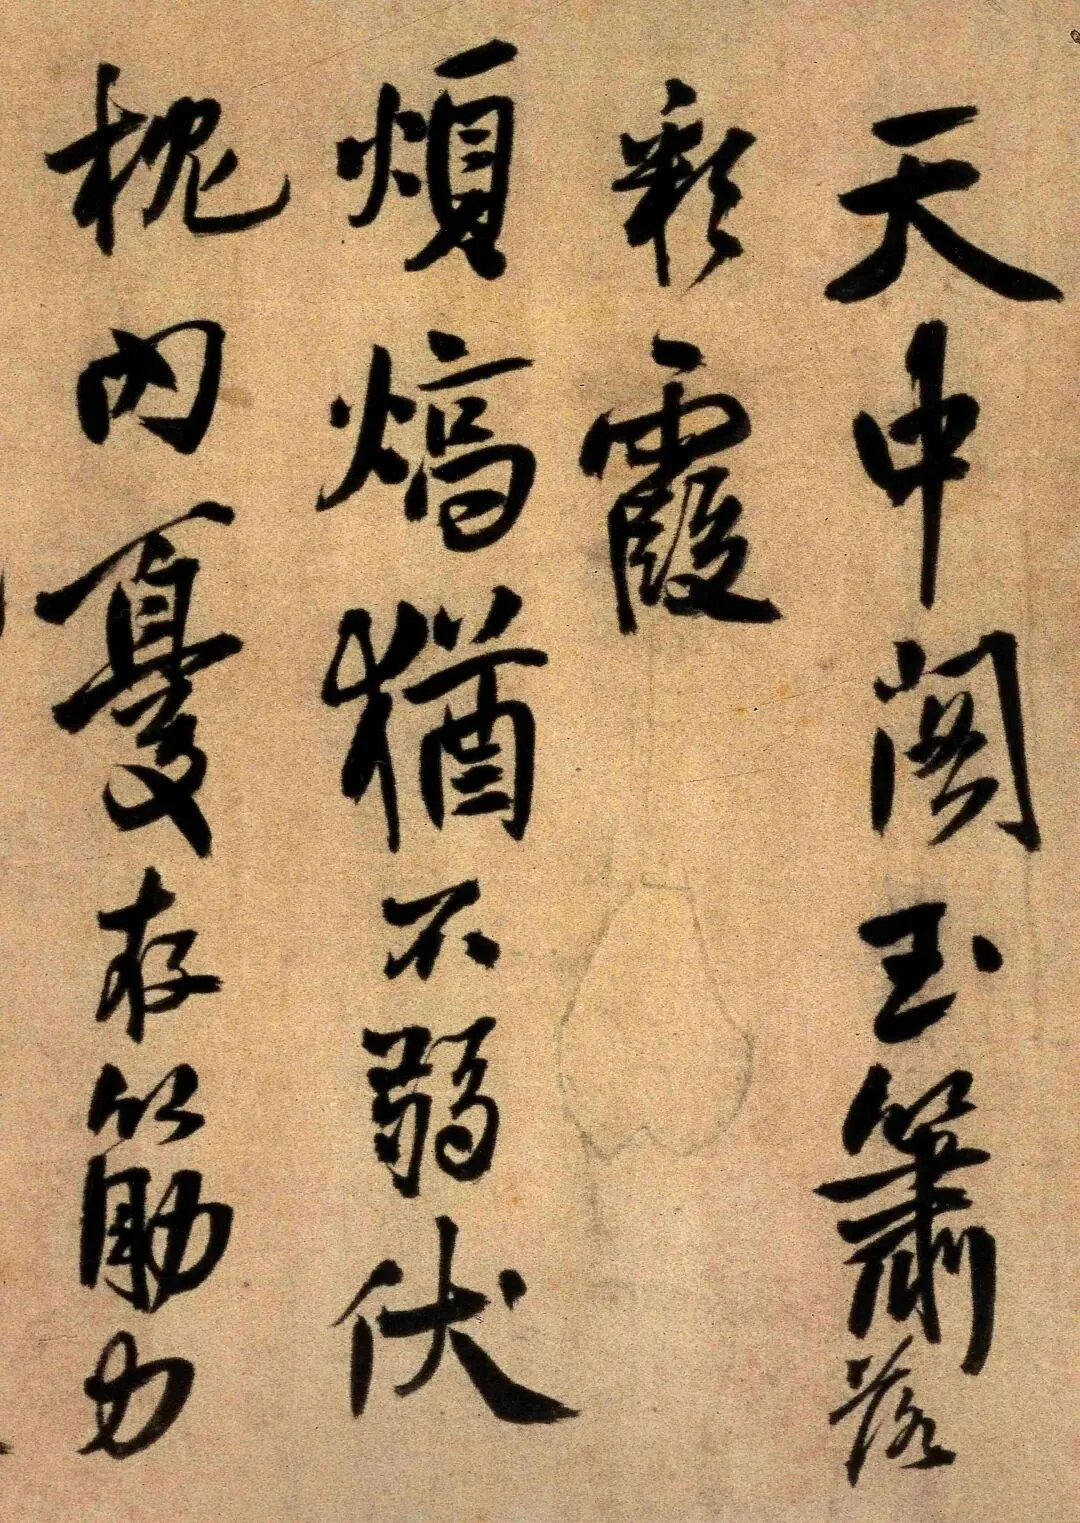 天中闕玉簫落
彩霞
煩熇猶不弱伏
枕内憂存筋力